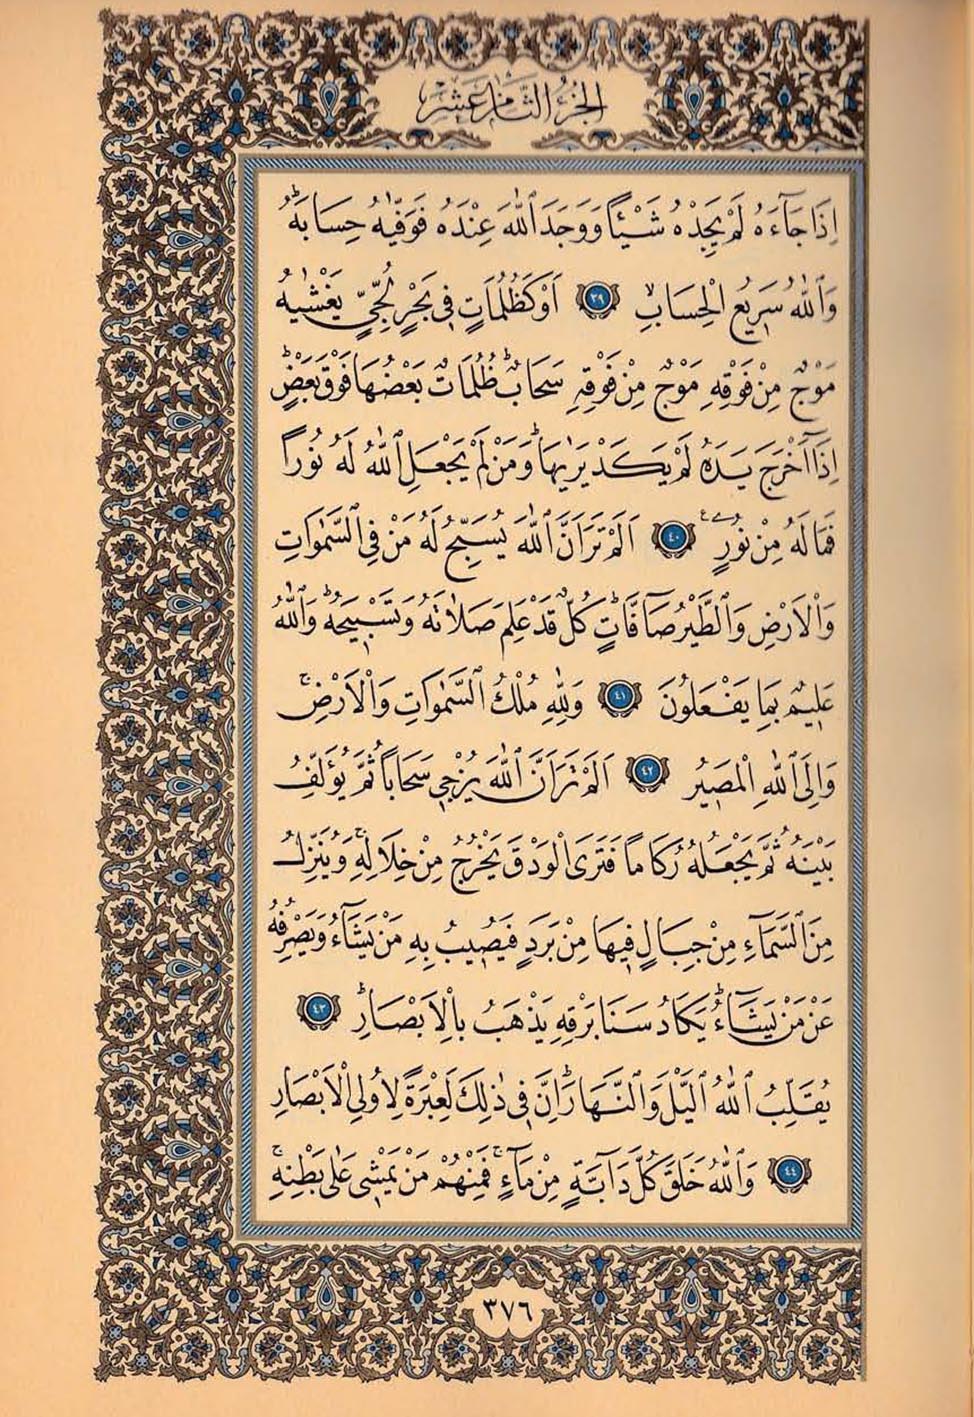 الجزء الثامن عشر
اِذَا جَآءَهُ لَمْ يَجِدْهُ شَيْـًٔا وَوَجَدَ ٱللّٰهَ عِنْدَهُ فَوَفّٰيهُ حِسَابَهُۜ
وَٱللّٰهُ سَرِيعُ الْحِسَابِۙ ٣٩ اَوْ كَظُلُمَاتٍ فِى بَحْرٍ لُجِّىٍّ يَغْشٰيهُ
مَوْجٌ مِنْ فَوْقِهِ مَوْجٌ مِنْ فَوْقِهِ سَحَابٌۜ ظُلُمَاتٌ بَعْضُهَا فَوْقَ بَعْضٍۜ
اِذَٓا اَخْرَجَ يَدَهُ لَمْ يَكَدْ يَرٰيهَاۜ وَمَنْ لَمْ يَجْعَلِ ٱللّٰهُ لَهُ نُورًا
فَمَا لَهُ مِنْ نُورٍ۟ ٤٠ اَلَمْ تَرَ اَنَّ ٱللّٰهَ يُسَبِّحُ لَهُ مَنْ فِى ٱلسَّمٰوَاتِ
وَالْاَرْضِ وَٱلطَّيْرُ صَٓافَّاتٍۜ كُلٌّ قَدْ عَلِمَ صَلَاتَهُ وَتَسْبِيحَهُۜ وَٱللّٰهُ
عَلِيمٌ بِمَا يَفْعَلُونَ ٤١ وَلِلّٰهِ مُلْكُ ٱلسَّمٰوَاتِ وَالْاَرْضِۚ
وَاِلَى ٱللّٰهِ الْمَصِيرُ ٤٢ اَلَمْ تَرَ اَنَّ ٱللّٰهَ يُزْجِى سَحَابًا ثُمَّ يُؤَلِّفُ
بَيْنَهُ ثُمَّ يَجْعَلُهُ رُكَامًا فَتَرَى الْوَدْقَ يَخْرُجُ مِنْ خِلَالِهِۚ وَيُنَزِّلُ
مِنَ ٱلسَّمَٓاءِ مِنْ جِبَالٍ فِيهَا مِنْ بَرَدٍ فَيُصِيبُ بِهِ مَنْ يَشَٓاءُ وَيَصْرِفُهُ
عَنْ مَنْ يَشَٓاءُۜ يَكَادُ سَنَا بَرْقِهِ يَذْهَبُ بِالْاَبْصَارِۜ ٤٣
يُقَلِّبُ ٱللّٰهُ ٱلَّيْلَ وَٱلنَّهَارَۜ اِنَّ فِى ذٰلِكَ لَعِبْرَةً لِاُولِى الْاَبْصَارِ
٤٤ وَٱللّٰهُ خَلَقَ كُلَّ دَٓابَّةٍ مِنْ مَٓاءٍۚ فَمِنْهُمْ مَنْ يَمْشِى عَلٰى بَطْنِهِۚ
٣٧٦